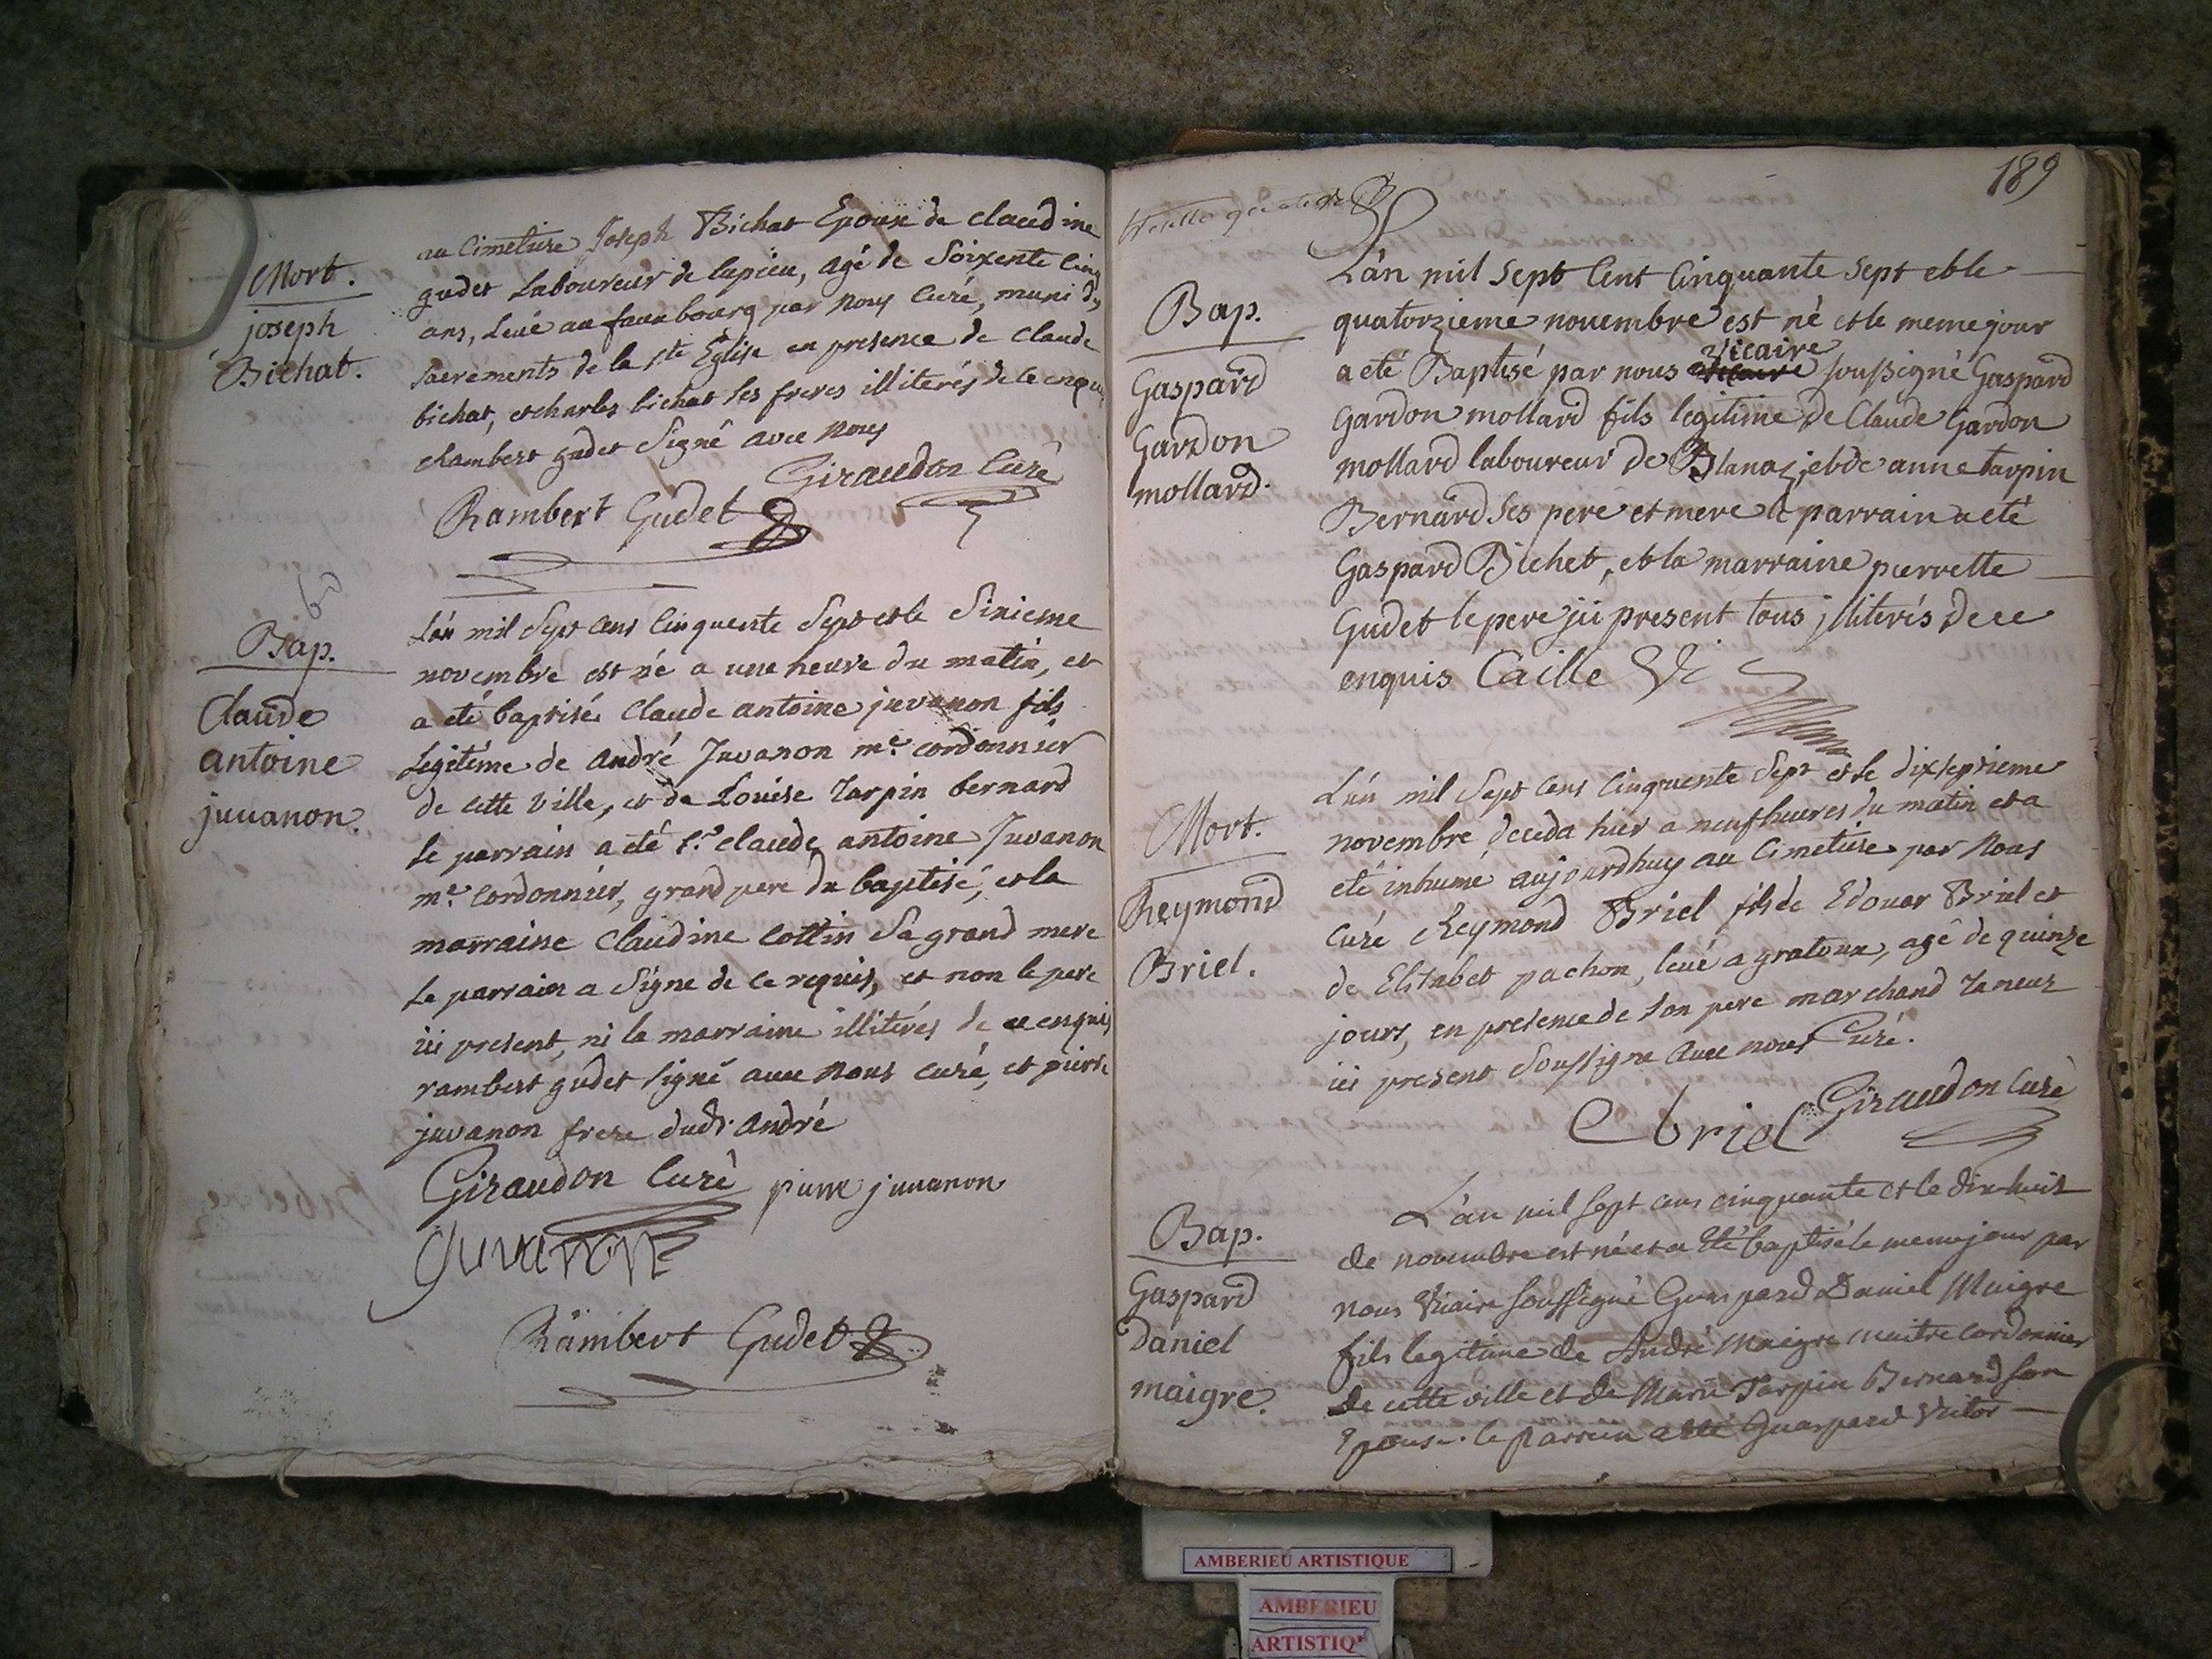 Mort.
joseph
Bichat.
au Cimetiere Joseph Bichat Epoux de claudine
gudet Laboureur de lupieu, agé de Soixente Cinq
ans, Levé au fauxbourg par Nous Curé, muni des
Sacrements de la ste Eglise en presence de Claude
bichat, et charles bichat ses freres illiterés de ce enquis
Rambert gudet Signé avec Nous
Giraudon Curé
Rambert Gudet
Bap.
Claude
antoine
juuanon.
L'an mil Sept Cens Cinquente Sept et le Sixieme
novembre est né a une heure du matin, et
a eté baptisé Claude antoine juvanon fils
Legitime de André Juvanon me. cordonnier
de cette Ville, et de Louise Tarpin bernard
le parrain a eté Sr. claude antoine Juvanon
me. Cordonnier, grand pere du baptisé, et la
marraine Claudine Cottin Sa grand mere
le parrain a Signe de ce requis, et non le pere
ici present, ni la marraine illiterés de ce enquis
rambert gudet signé avec Nous Curé, et pierre
juvanon frere dudt. André
Giraudon Curé pierre juuanon
Juvanon
Rambert Gudet
189
Bap.
Gaspard
Gardon
mollard.
L'an mil Sept Cent Cinquante Sept et le
quatorzieme novembre est né et le meme jour
a eté Baptisé par nous Vicaire soussigné Gaspard
Gardon mollard fils legitime de Claude Gardon
mollard laboureur de Blanaz, et de anne tarpin
Bernard Ses pere et mere le parrain a eté
Gaspard Bichet, et la marraine pierrette
Gudet le pere ici present tous illiterés de ce
enquis Caille Vic
Mort.
Reymond
Briel.
L'an mil Sept Cens Cinquente Sept et le dixseptieme
novembre deceda hier a neuf heures du matin et a
eté inhumé aujourdhuy au Cimetiere par Nous
Curé Reymond Briel fils de Edouar Briel et
de Elisabet pachon, levé a gratoux, agé de quinze
jours, en presence de Son pere marchand Taneur
ici present Soussigne avec nous Curé.
Ebriel Giraudon Curé
Bap.
Gaspard
Daniel
maigre.
L'an mil sept cens cinquante et le dix huit
de novembre est né et a Eté baptisé le meme jour par
nous Vicaire soussigné Guaspard Daniel Maigre
fils legitime de André Maigre maitre Cordonnier
de cette ville et de Marie Tarpin Bernard son
Epouse. le parrain a eté Guaspard Vuitor
AMBERIEU ARTISTIQUE
AMBERIEU
ARTISTIQ